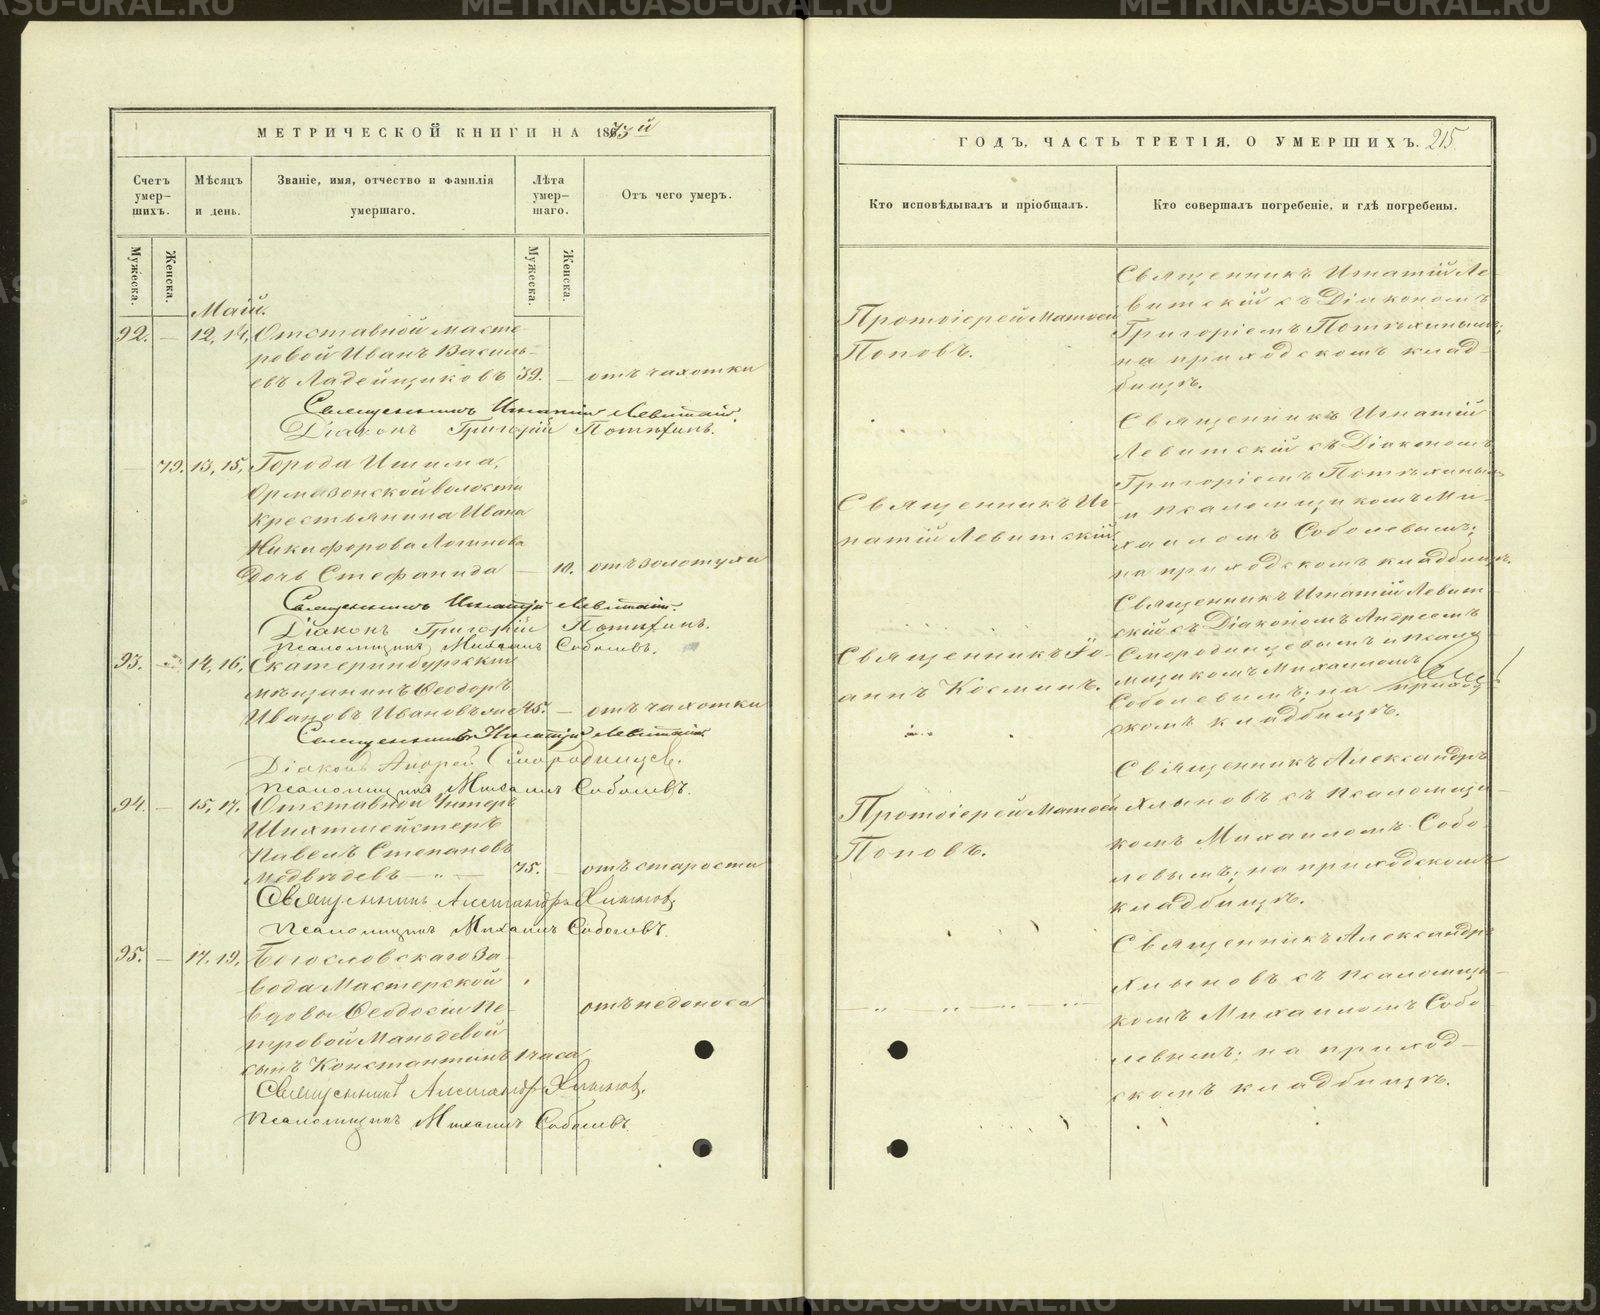 МЕТРИЧЕСКОЙ КНИГИ НА 1873й
Счетъ умер-шихъ.
Мѣсяцъ и день.
Званіе, имя, отчество и фамилія умершаго.
Лѣта умер-шаго.
Отъ чего умеръ.
Мужеска.
Женска.
Мужеска.
Женска.
Май.
92. — 12, 14, Отставной масте-
ровой Иванъ Василь-
евъ Ладейщиковъ 39. — отъ чахотки
Священникъ Игнатій Левитскій.
Діаконъ Григорій Потѣхинъ.
— 79. 13, 15, Города Ишима,
волости
крестьянина Ивана
Никифорова Логинова
дочь Стефанида — 10. отъ золотухи
Священникъ Игнатій Левитскій.
Діаконъ Григорій Потѣхинъ.
Псаломщикъ Михаилъ Соболевъ.
93. — 14, 16, Екатеринбургскій
мѣщанинъ Ѳеодоръ
Ивановъ Ивановъ 45. — отъ чахотки
Священникъ Игнатій Левитскій
Діаконъ Андрей Смородинцевъ.
Псаломщикъ Михаилъ Соболевъ.
94. — 15, 17, Отставной Унтеръ
Шихтмейстеръ
Павелъ Степановъ
Медвѣдевъ — „ — 75. — отъ старости
Священникъ Александръ Хлыновъ,
Псаломщикъ Михаилъ Соболевъ.
95. — 17, 19, Богословскаго За-
вода Мастерской
вдовы Ѳеодосіи Пе- отъ недоноса
тровой
сынъ Константинъ 1 часа
Священникъ Александръ Хлыновъ,
Псаломщикъ Михаилъ Соболевъ.
ГОДЪ, ЧАСТЬ ТРЕТІЯ, О УМЕРШИХЪ. 215
Кто исповѣдывалъ и пріобщалъ.
Кто совершалъ погребеніе, и гдѣ погребены.
Протоіерей Матѳей
Поповъ.
Священникъ Игнатій Ле-
витскій съ Діакономъ
Григоріемъ Потѣхинымъ;
на приходскомъ клад-
бищѣ.
Священникъ Иг-
натій Левитскій
Священникъ Игнатій
Левитскій съ Діакономъ
Григоріемъ Потѣхинымъ
и псаломщикомъ Ми-
хаиломъ Соболевымъ;
на приходскомъ кладбищѣ.
Священникъ Іо-
аннъ Космихъ.
Священникъ Игнатій Левит-
скій съ Діакономъ Андреемъ
Смородинцевымъ и псало-
мщикомъ Михаиломъ
Соболевымъ; на приход-
скомъ кладбищѣ.
Протоіерей Матѳей
Поповъ.
Священникъ Александръ
Хлыновъ съ Псаломщи-
комъ Михаиломъ Собо-
левымъ; на приходскомъ
кладбищѣ.
— „ — „ — „ —
Священникъ Александръ
Хлыновъ съ Псаломщи-
комъ Михаиломъ Собо-
левымъ; на приход-
скомъ кладбищѣ.
METRIKI.GASO-URAL.RU